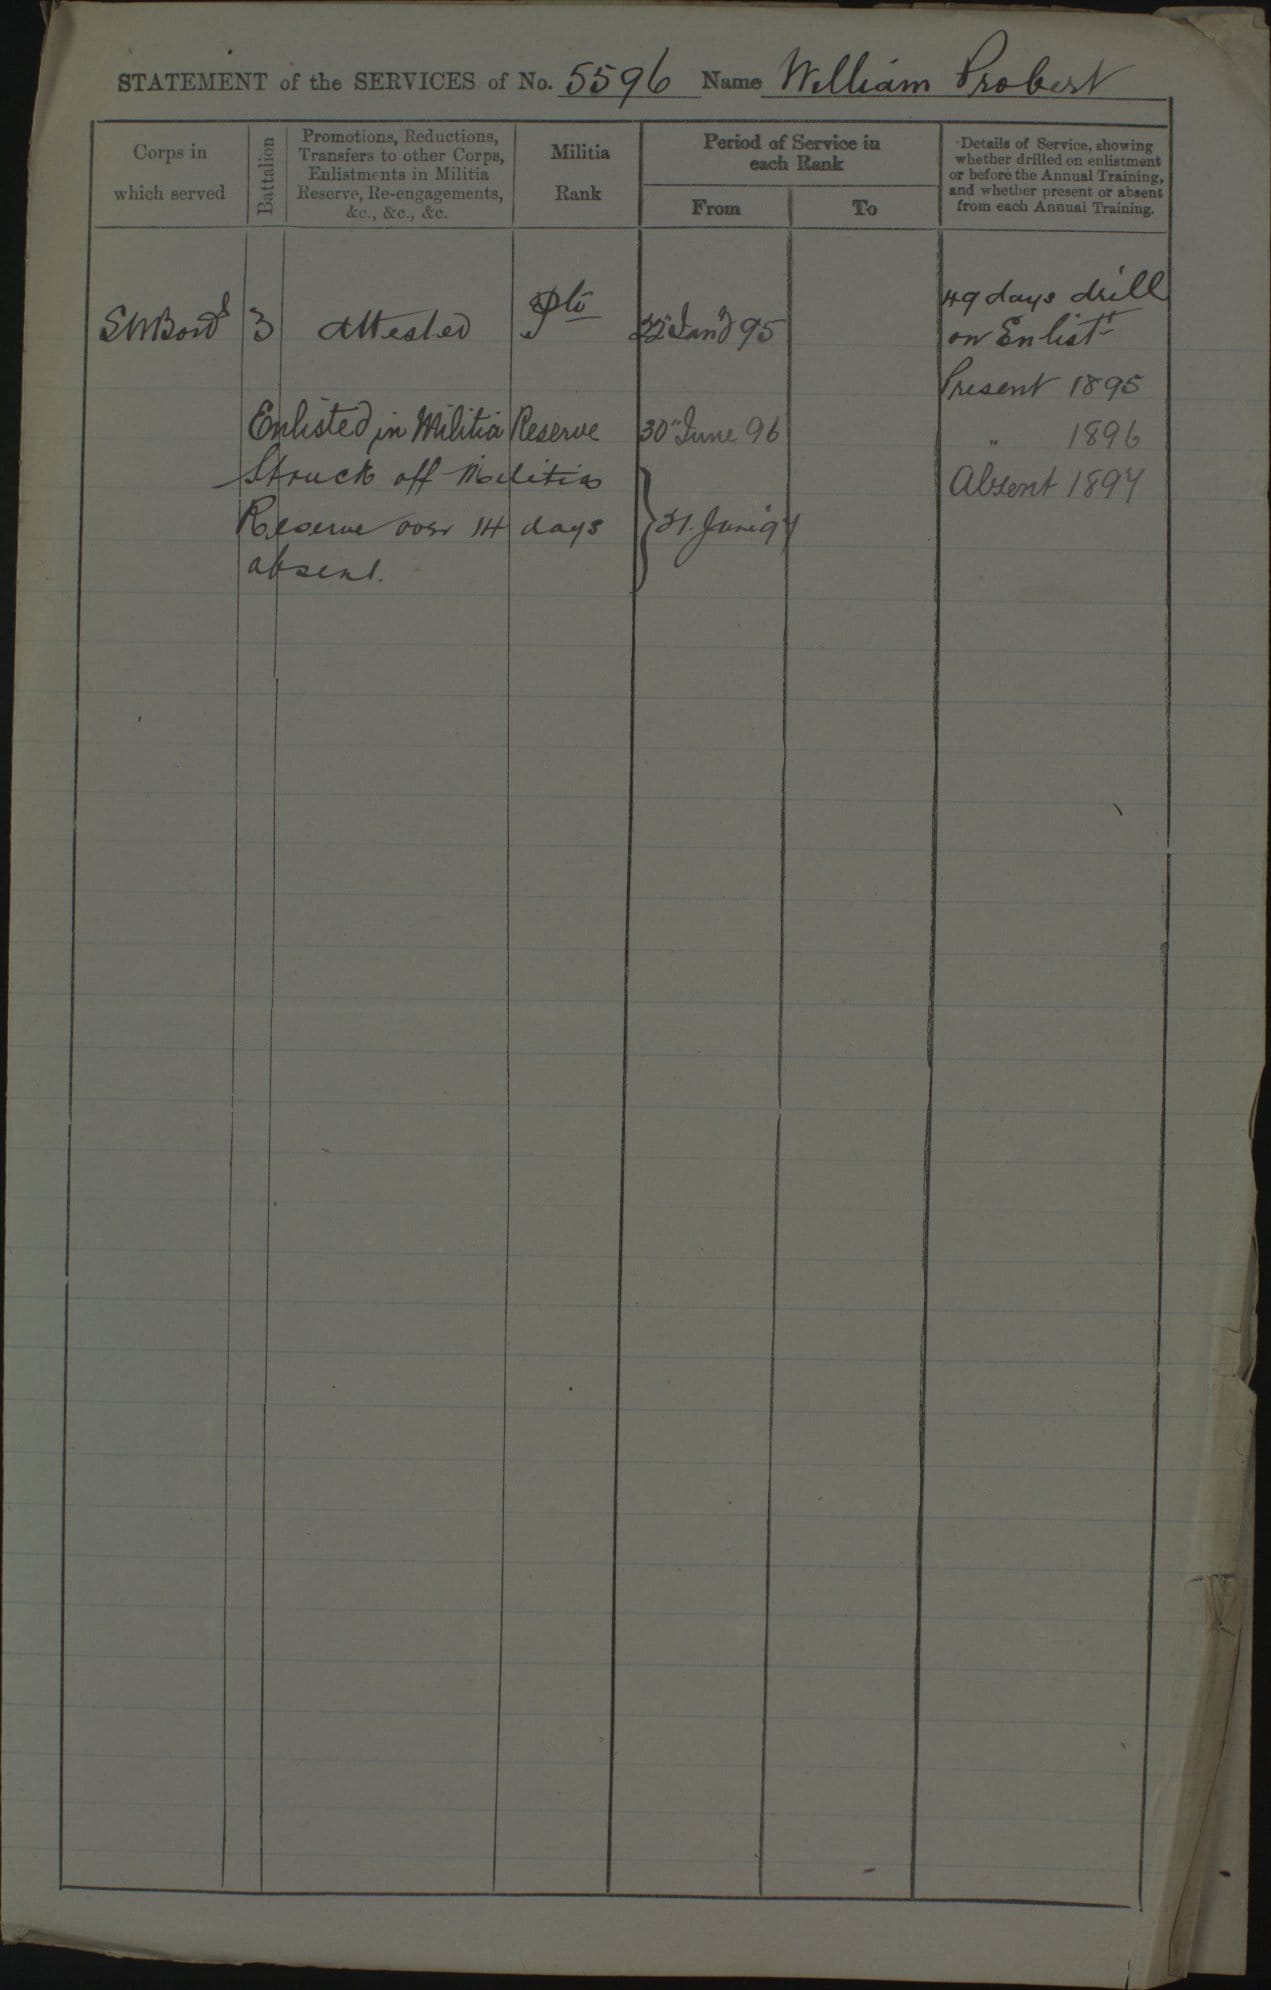 STATEMENT of the SERVICES of No. 5596 Name William Probert
Corps in
which served
Battalion
Promotions, Reductions,
Transfers to other Corps,
Enlistments in Militia
Reserve, Re-engagements,
&c., &c., &c.
Militia
Rank
Period of Service in
each Rank
From
To
Details of Service, showing
whether drilled on enlistment
or before the Annual Training,
and whether present or absent
from each Annual Training.
SWBord 3 Attested Pte Jany 95
49 days drill
on Enlistt
Present 1895
Enlisted in Militia Reserve 30" June 96
" 1896
Struck off Militia
Absent 1897
Reserve over 14 days
June 97
absent.